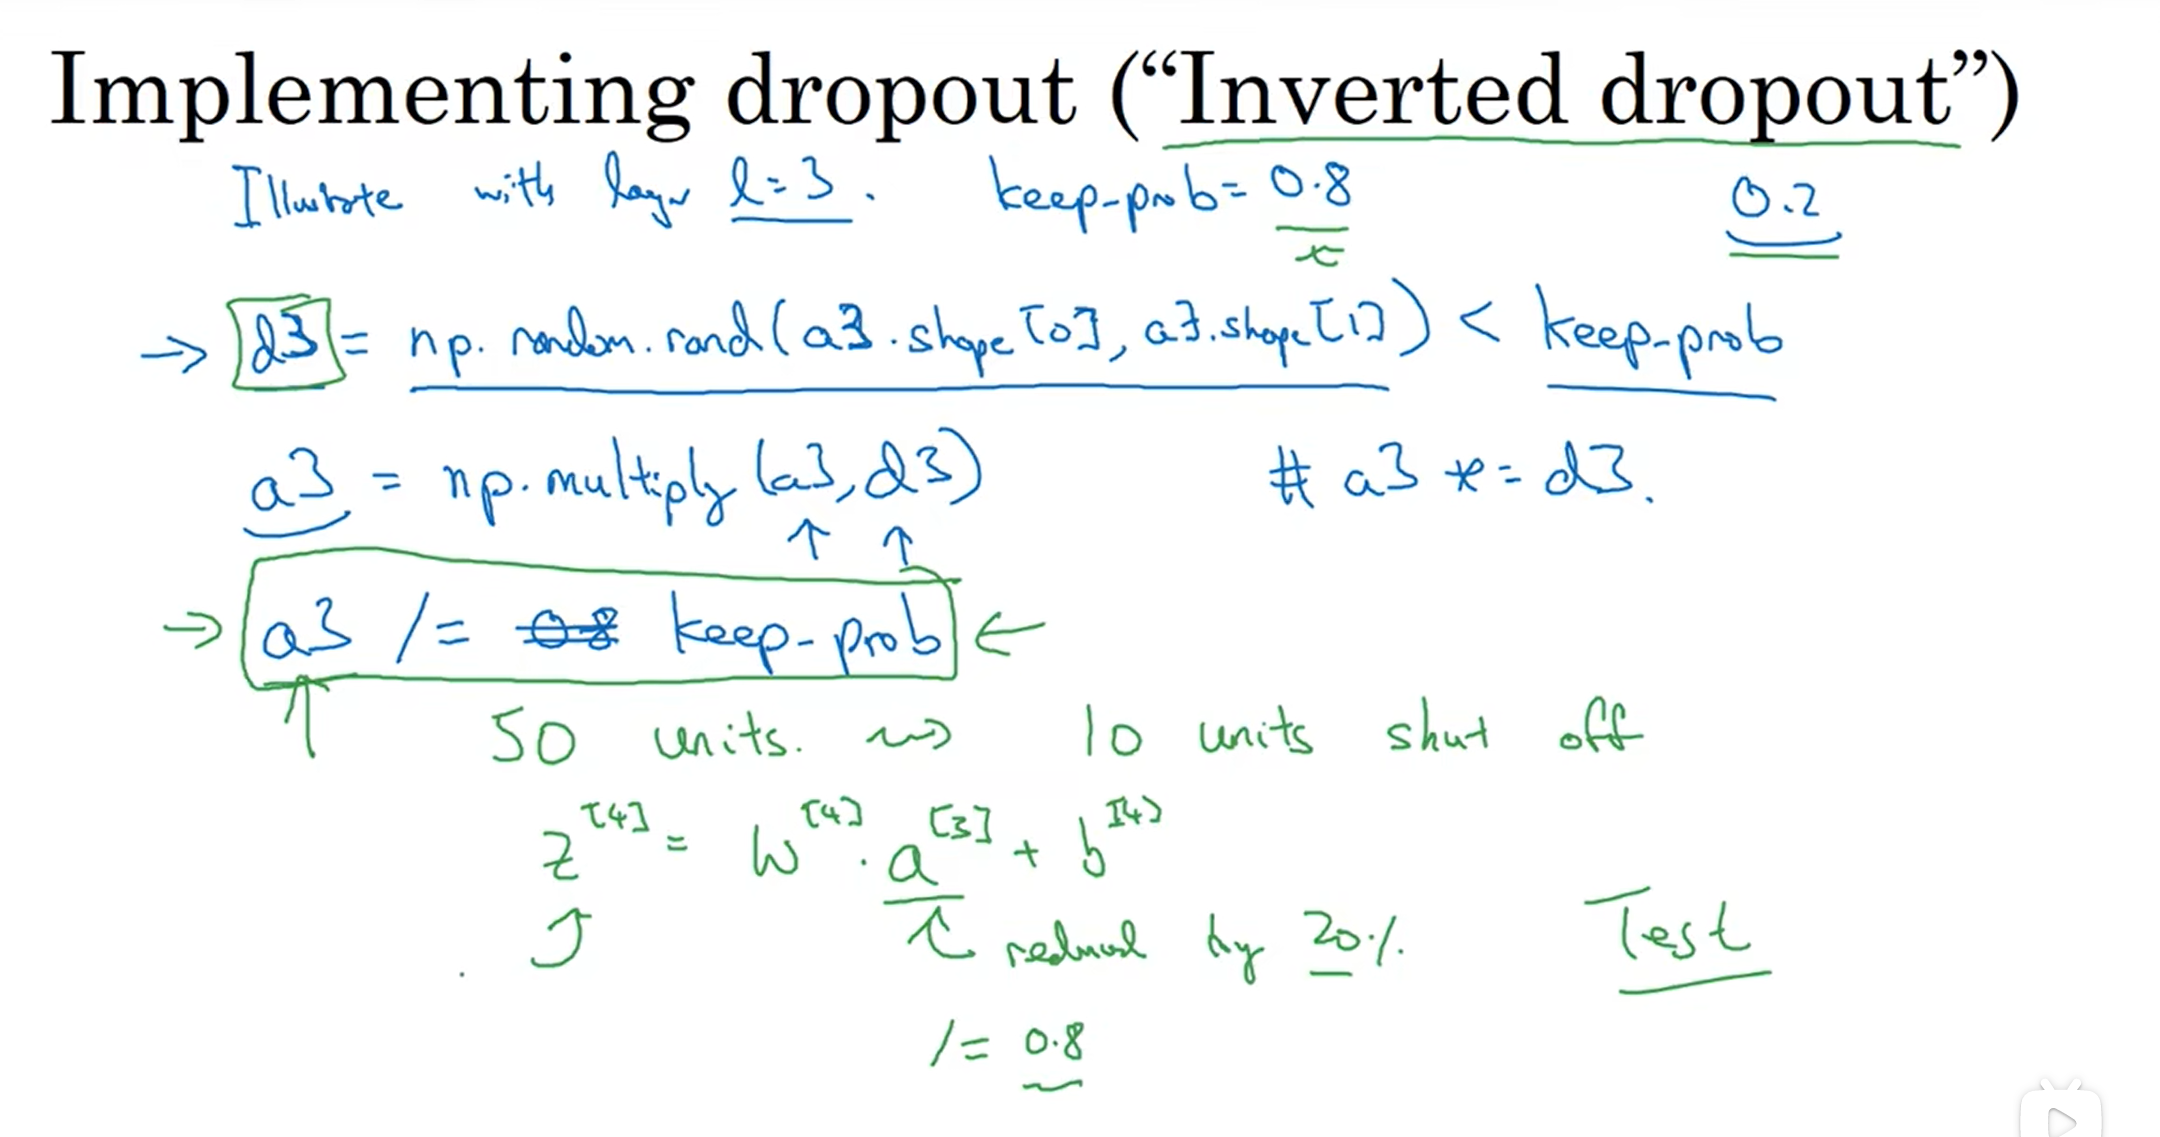 Implementing dropout (“Inverted dropout”)
Illustrate with layer l=3. keep-prob= 0.8 0.2
→ d3 = np.random.rand(a3.shape[0], a3.shape[1]) < keep-prob
a3 = np.multiply(a3, d3) # a3 *= d3.
→ a3 /= 0.8 keep-prob ←
50 units. ⇝ 10 units shut off
z[4] = W[4] · a[3] + b[4]
reduced by 20% Test
/= 0.8